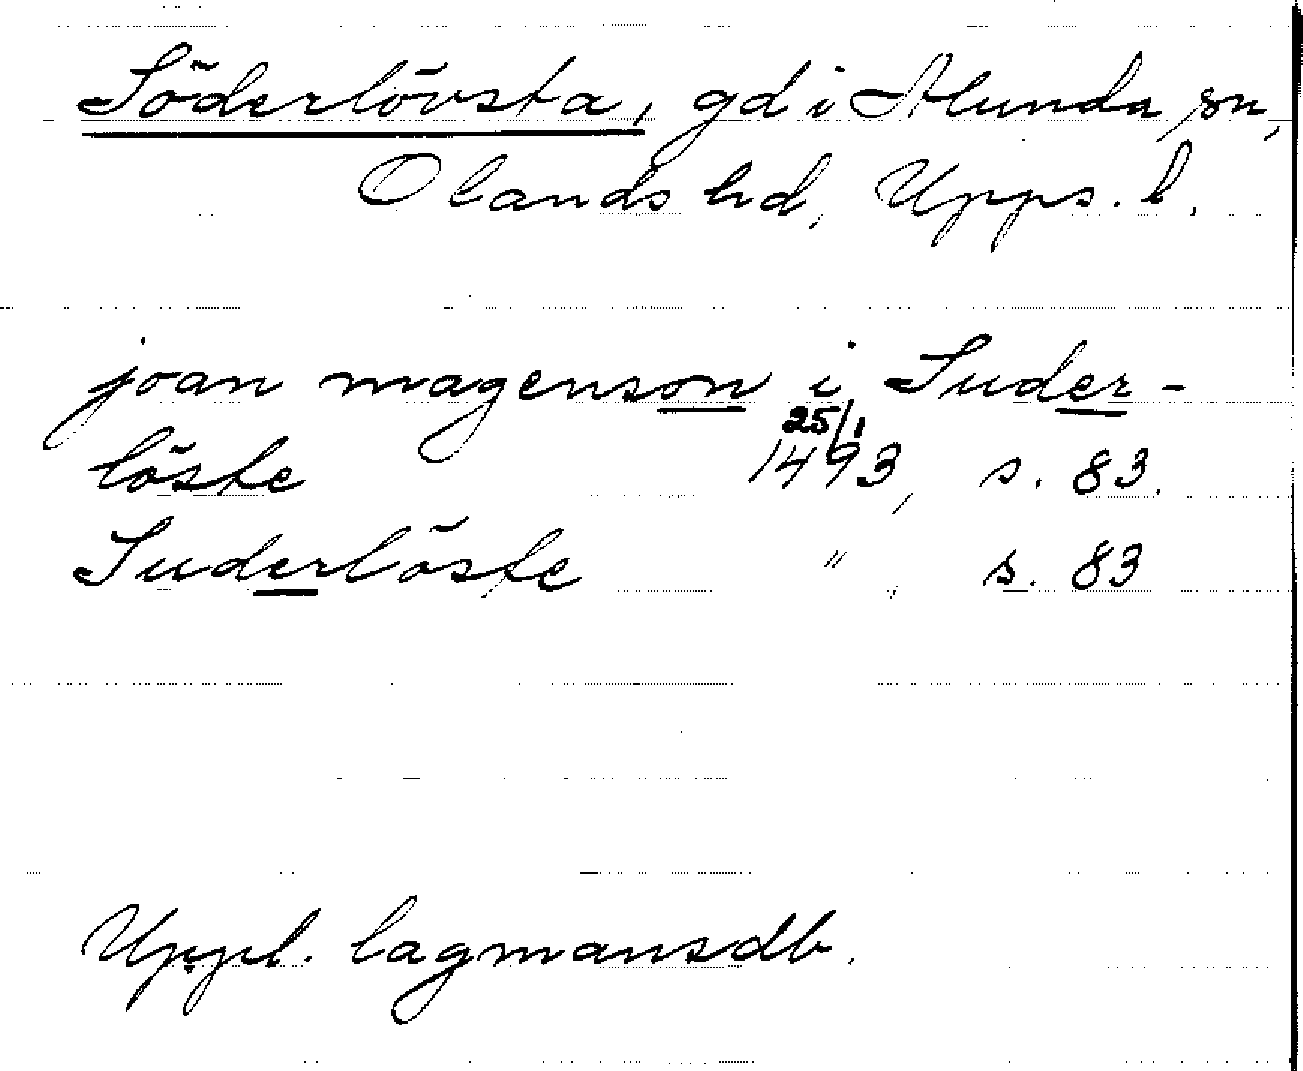 Söderlövsta, gd i Alunda sn,
Olands hd, Upps. l.
joan magenson i Suder-
löste 25/1 1493, s. 83.
Suderlöste " , s. 83
Uppl. lagmansdb.